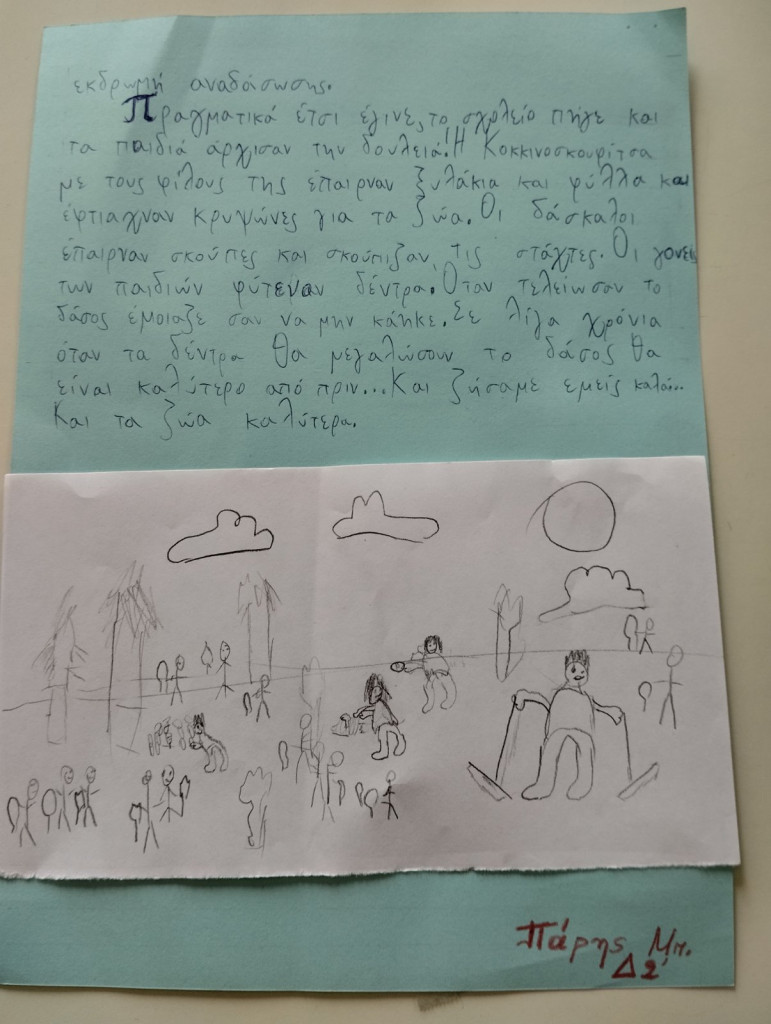 εκδρωμή αναδάσωσης.
Πραγματικά έτσι έγινε, το σχολείο πήγε και
τα παιδιά άρχισαν την δουλειά! Η Κοκκινοσκουφίτσα
με τους φίλους της έπαιρναν ξυλάκια και φύλλα και
έφτιαχναν κρυψώνες για τα ζώα. Οι δάσκαλοι
έπαιρναν σκούπες και σκούπιζαν τις στάχτες. Οι γονείς
των παιδιών φύτευαν δέντρα. Όταν τελείωσαν το
δάσος έμοιαζε σαν να μην κάηκε. Σε λίγα χρόνια
όταν τα δέντρα θα μεγαλώσουν το δάσος θα
είναι καλύτερο από πριν... Και ζήσαμε εμείς καλά...
Και τα ζώα καλύτερα.
Πάρης Μπ.
Δ2'